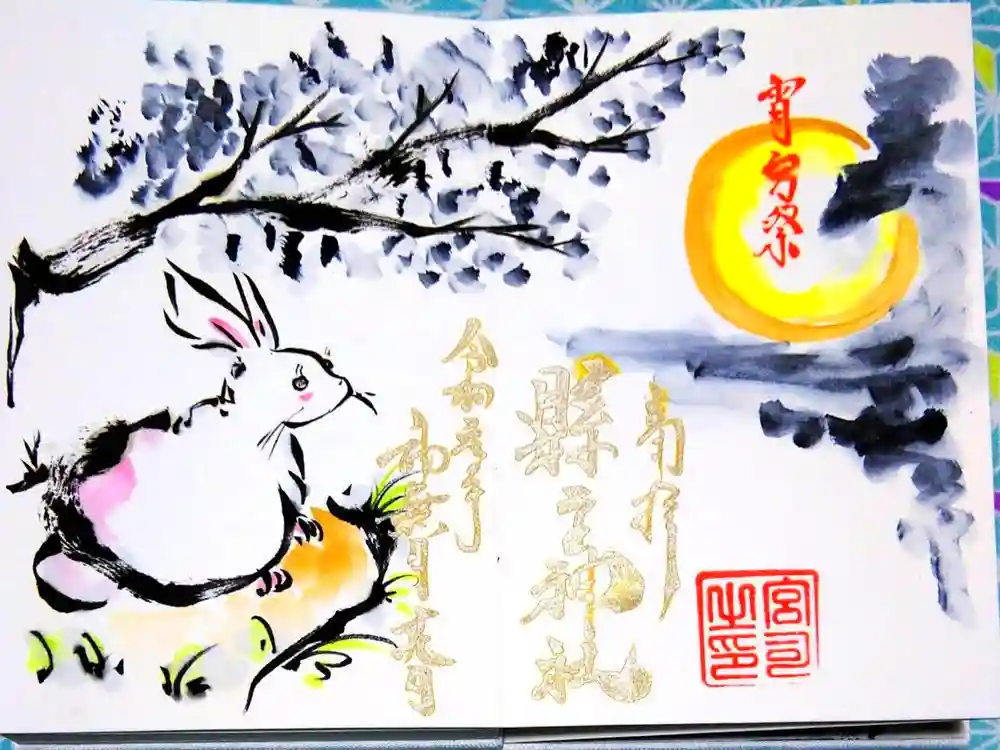 宵宮祭
奉拝
縣主神社
令和元年
神無月
宮司
之印